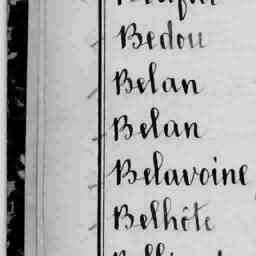 Bedou
Belan
Belan
Belavoine
Belhôte